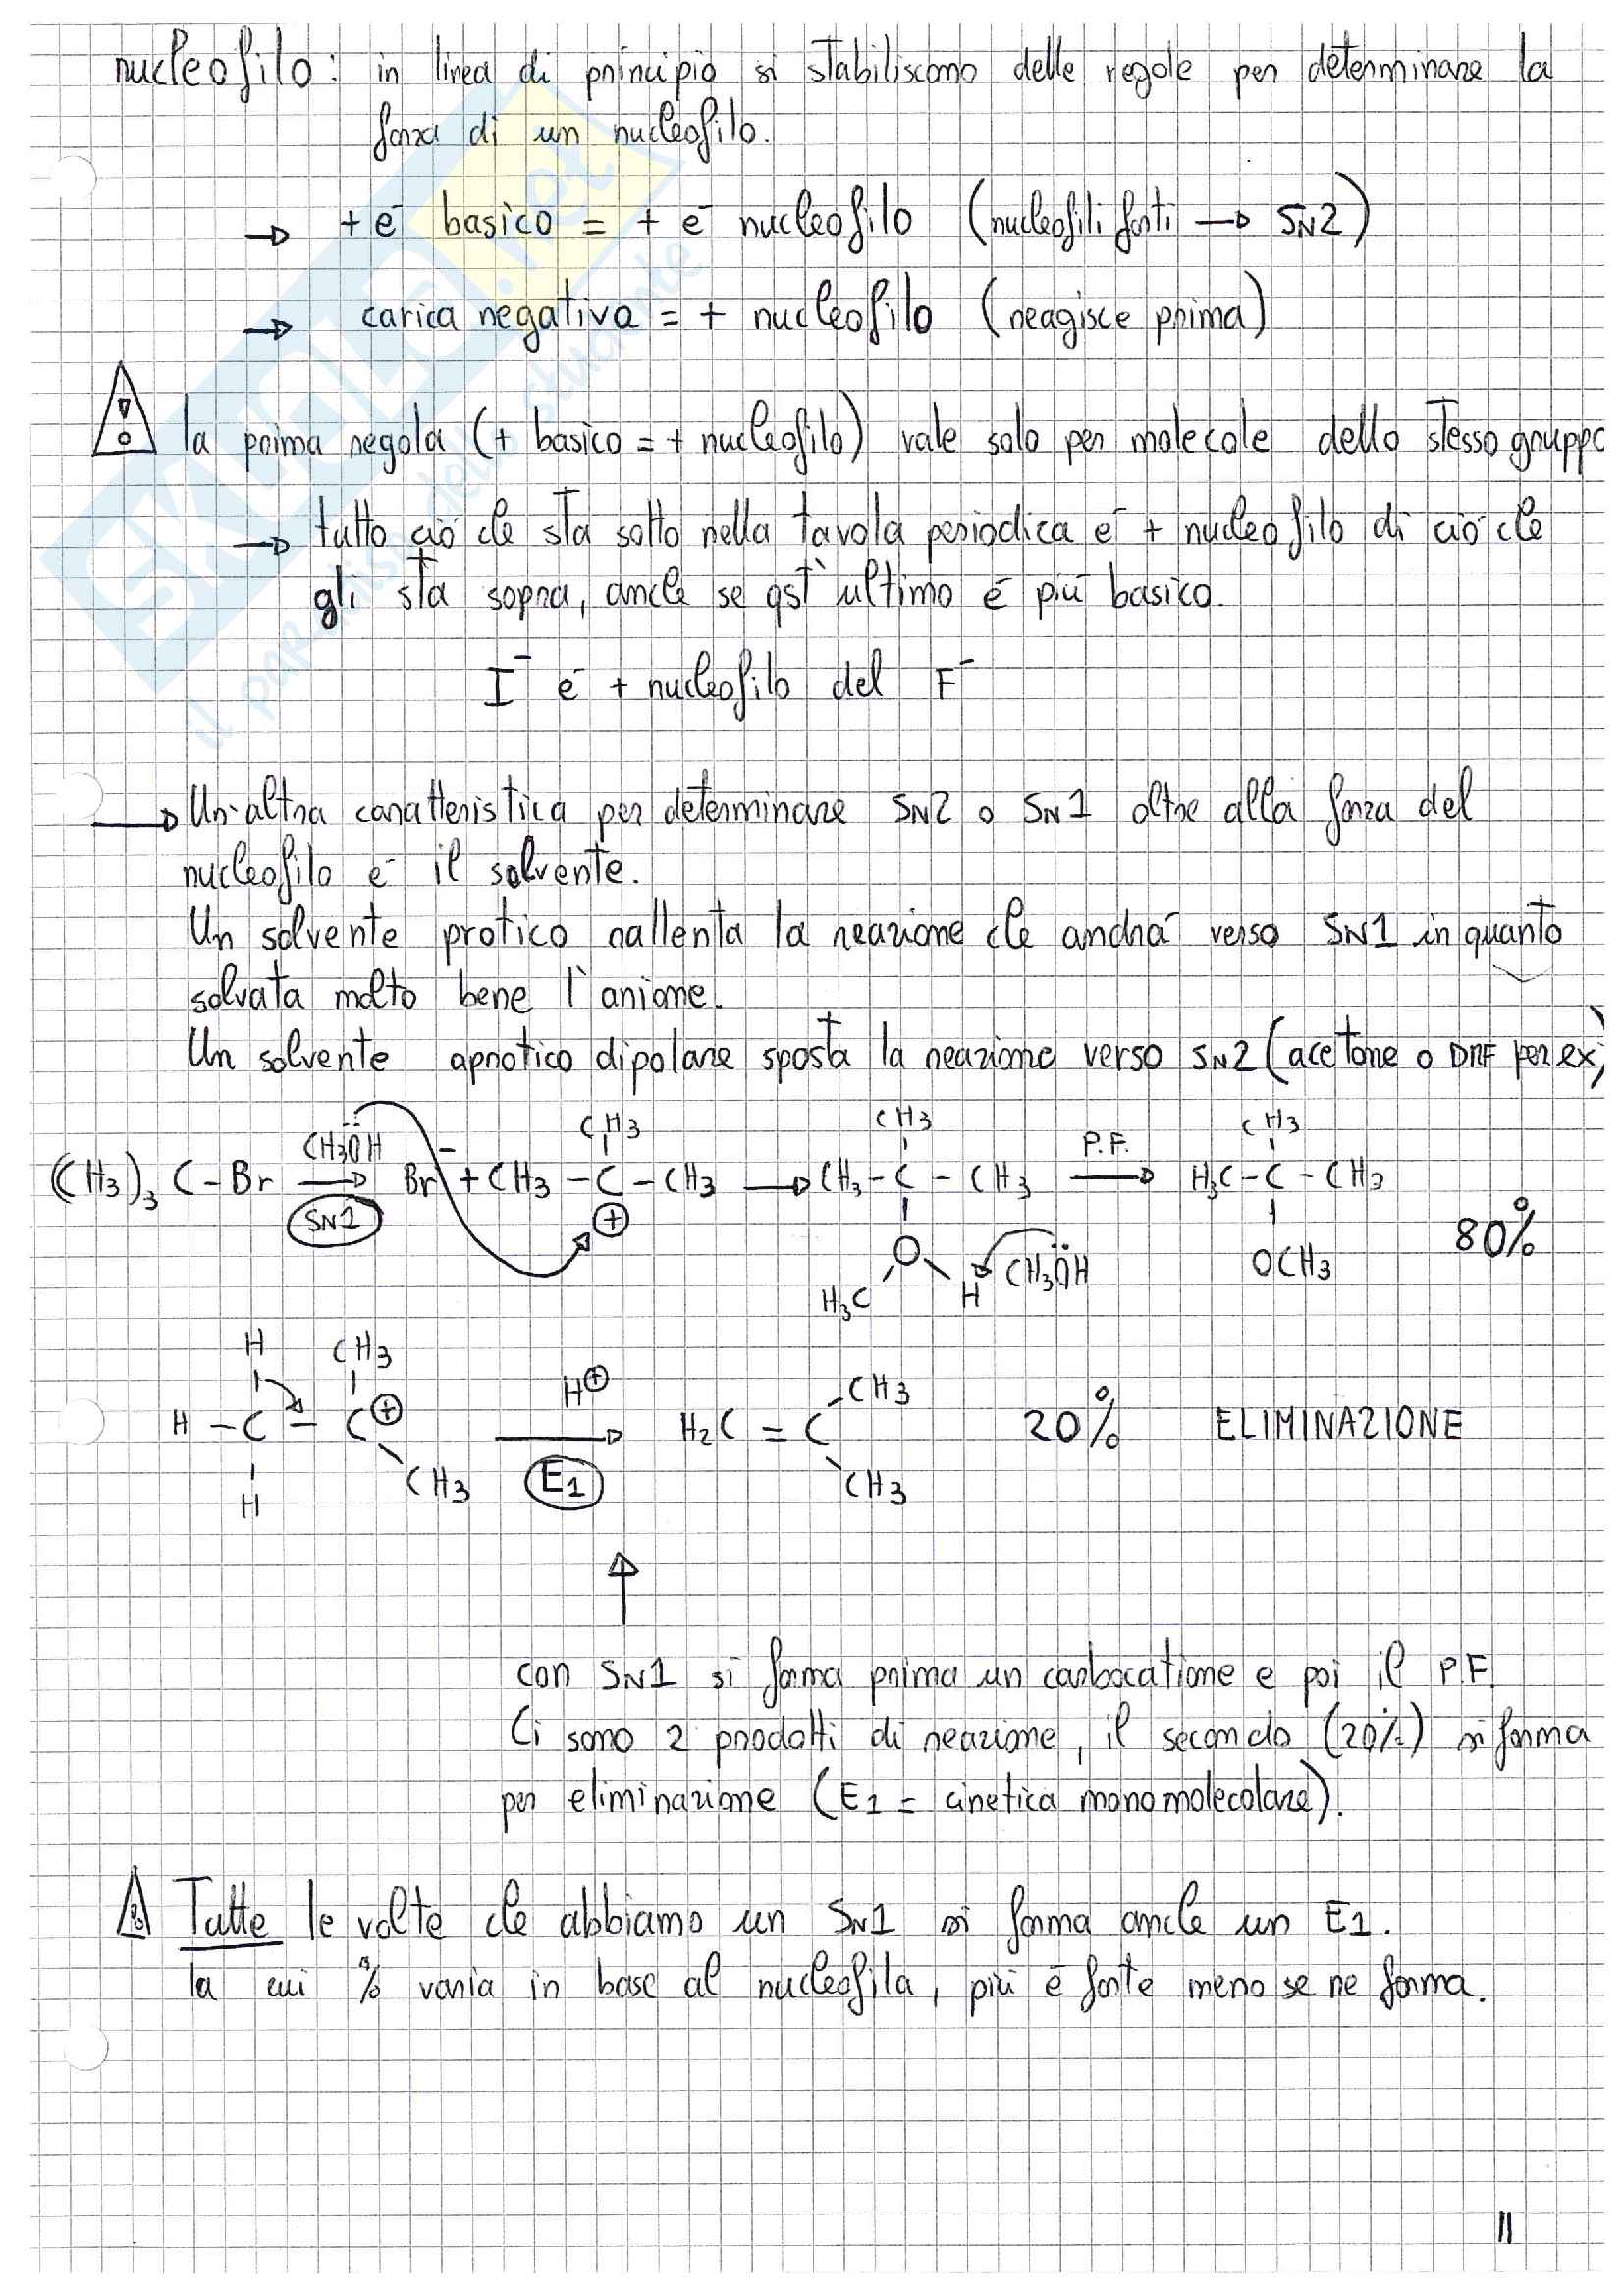 nucleofilo: in linea di principio si stabiliscono delle regole per determinare la
forza di un nucleofilo.
→ + è basico = + è nucleofilo (nucleofili forti → SN2)
→ carica negativa = + nucleofilo (reagisce prima)
la prima regola (+ basico = + nucleofilo) vale solo per molecole dello stesso gruppo
→ tutto ciò che sta sotto nella tavola periodica è + nucleofilo di ciò che
gli sta sopra, anche se qst'ultimo è più basico.
I⁻ è + nucleofilo del F⁻
→ Un'altra caratteristica per determinare SN2 o SN1 oltre alla forza del
nucleofilo è il solvente.
Un solvente protico rallenta la reazione che andrà verso SN1 in quanto
solvata molto bene l'anione.
Un solvente aprotico dipolare sposta la reazione verso SN2 (acetone o DMF per ex)
CH3 CH3 CH3
CH3ÖH P.F.
(CH3)3 C-Br → Br⁻ + CH3-C-CH3 → CH3-C-CH3 → H3C-C-CH3
SN1 ⊕ O OCH3 80%
H3C H CH3ÖH
H CH3
H⊕ CH3
H-C-C⊕ → H2C=C 20% ELIMINAZIONE
CH3 E1 CH3
H
con SN1 si forma prima un carbocatione e poi il P.F.
Ci sono 2 prodotti di reazione, il secondo (20%) si forma
per eliminazione (E1 = cinetica monomolecolare).
Tutte le volte che abbiamo un SN1 si forma anche un E1.
la cui % varia in base al nucleofila, più è forte meno se ne forma.
11
SKUOLA.net
il paradiso dello studente